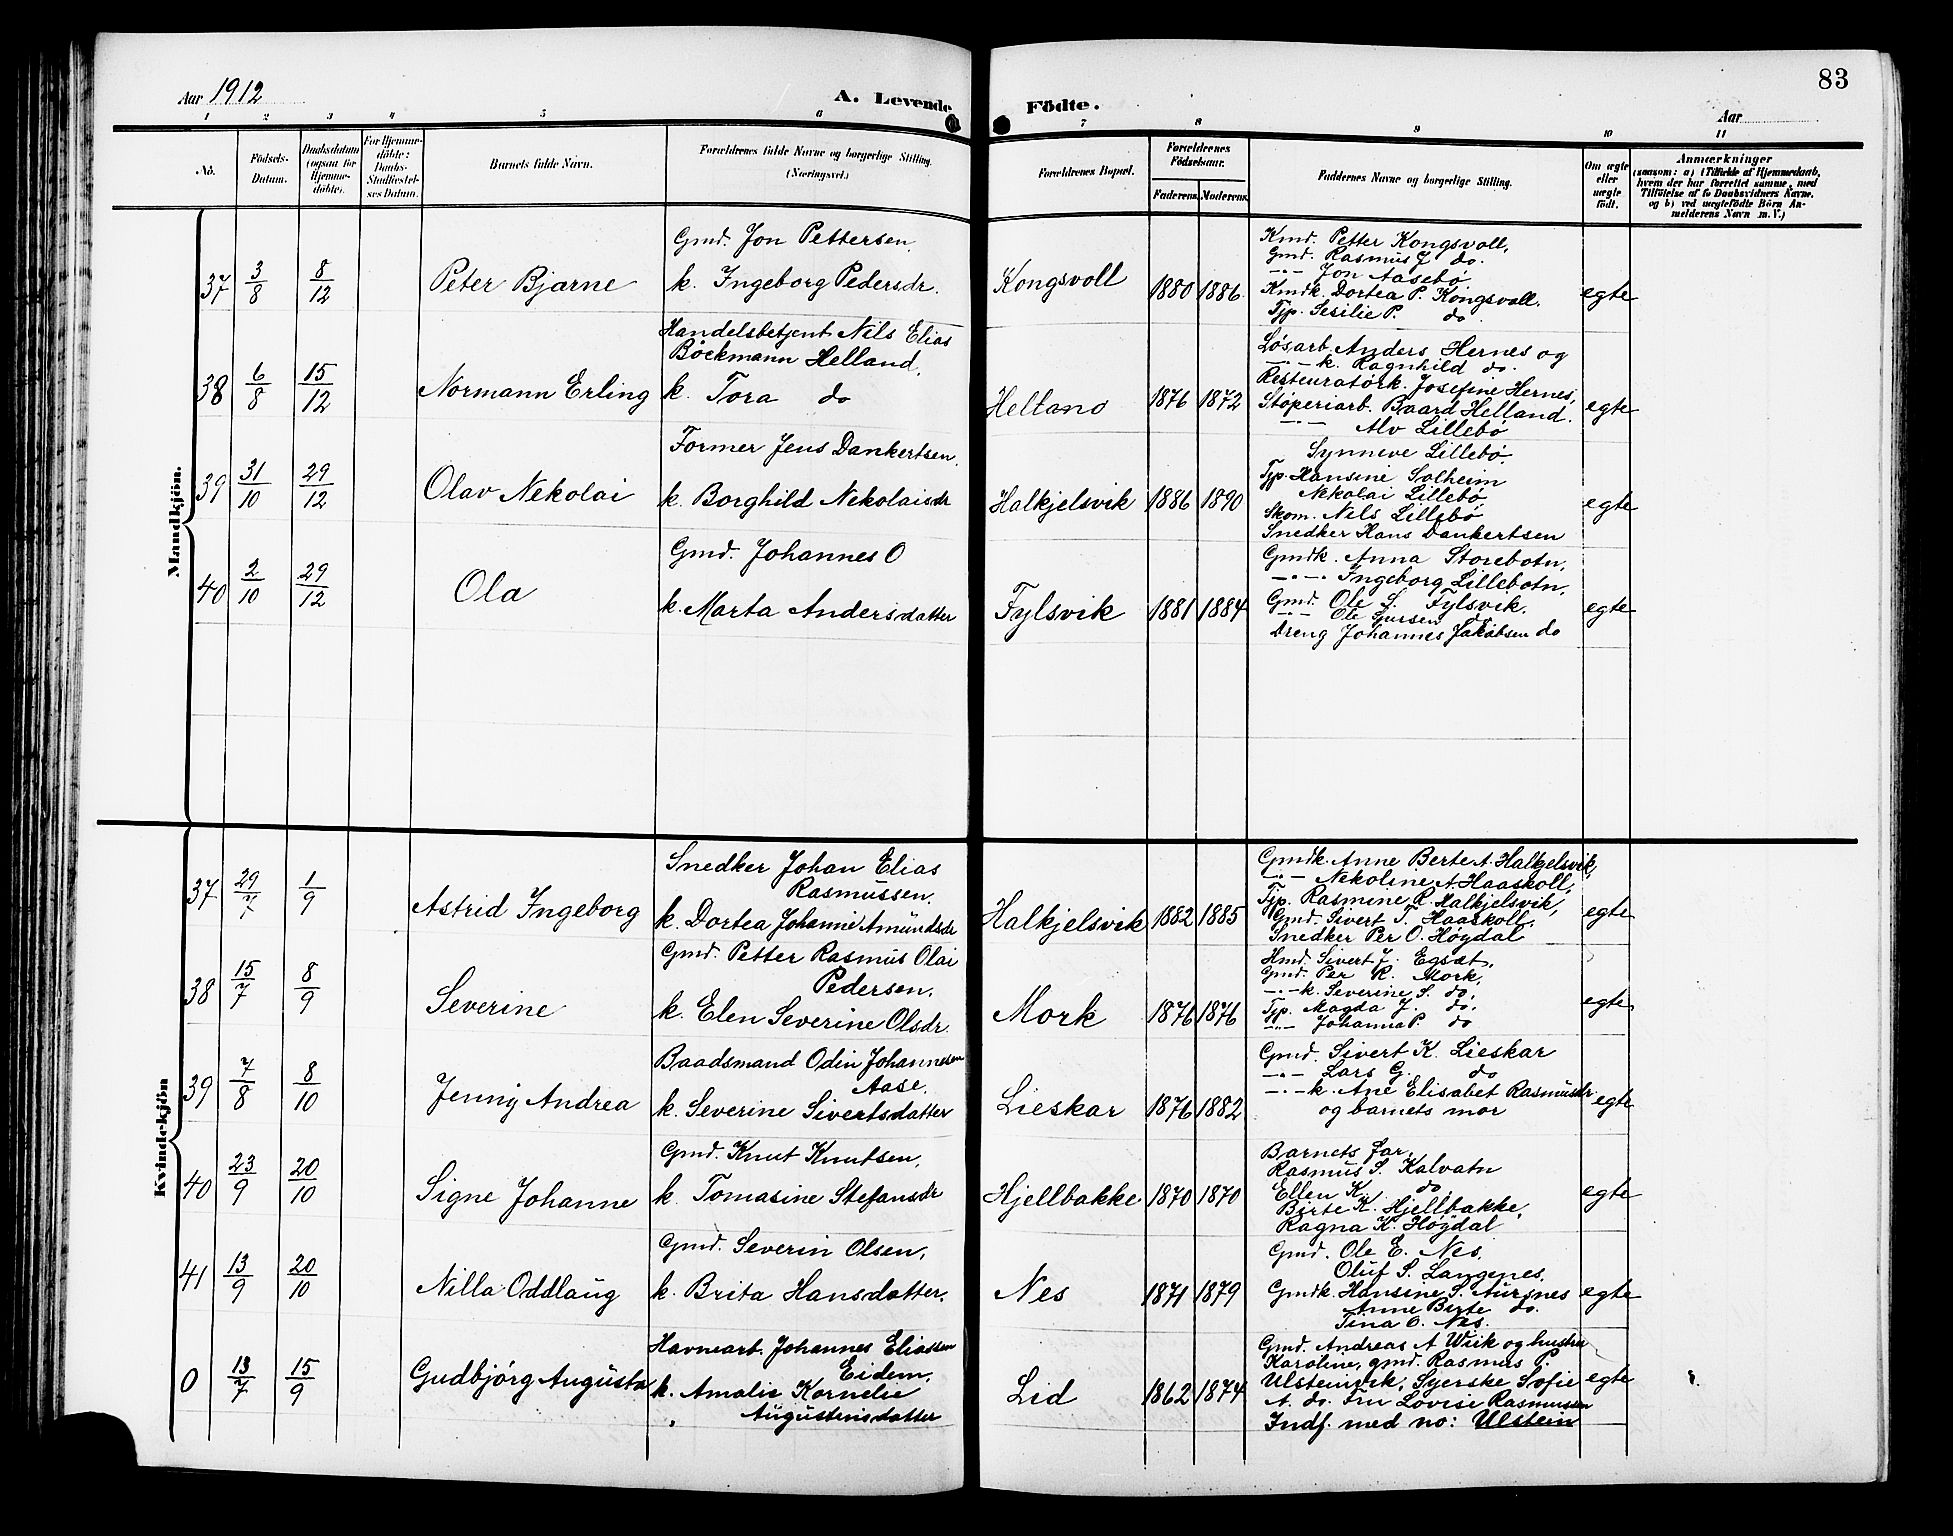 83
Aar 1912
A. Levende Födte.
Aar
1 2 3 4 5 6 7 8 9 10 11
No.
Födsels-
Datum.
Daabsdatum
(ogsaa for
Hjemme-
döbte).
For Hjemme-
döbte:
Daabs-
Stadfæstel-
ses Datum.
Barnets fulde Navn.
Forældrenes fulde Navne og borgerlige Stilling.
(Næringsvei.)
Forældrenes Bopæl.
Forældrenes
Fødselsaar.
Faderens. Moderens.
Faddernes Navne og borgerlige Stilling.
Om ægte
eller
uægte
födt.
Anmærkninger
(saasom: a) i Tilfælde af Hjemmedaab,
hvem der har forrettet samme, med
Tilføielse af to Daabsvidners Navne,
og b) ved uægtefödte Börn An-
melderens Navn m. V.)
Mandkjön.
37 3/8 8/12 Peter Bjarne
Gmd. Jon Pettersen.
k. Ingeborg Pedersdr.
Kongsvoll 1880 1886
Kmd. Petter Kongsvoll,
Gmd. Rasmus J do.
-"- Jon Aasebø
Kmdk. Dortea P. Kongsvoll.
Tjp. Sesilie P. do
egte
38 6/8 15/12 Normann Erling
Handelsbetjent Nils Elias
Böckmann Helland,
k. Tora do
Helland 1876 1872
Løsarb. Anders Hernes og
-"- k. Ragnhild do.
Restauratørk. Josefine Hernes,
Støperiarb. Baard Helland.
-"- Alv Lillebø
egte
39 31/10 29/12 Olav Nekolai
Former Jens Dankertsen,
k. Borghild Nekolaisdr
Halkjelsvik 1886 1890
Synneve Lillebø,
Tjp. Hansine Solheim
Nekolai Lillebø
Skom. Nils Lillebø
Snedker Hans Dankertsen
egte
40 2/10 29/12 Ola
Gmd. Johannes O
k. Marta Andersdatter
Fylsvik 1881 1884
Gmdk. Anna Storebotn,
-"- Ingeborg Lillebotn,
Gmd. Ole S. Fylsvik.
-"- Ole Gursen do
Dreng Johannes Jakobsen do
egte
Kvindekjön
37 29/7 1/9 Astrid Ingeborg
Snedker Johan Elias
Rasmussen.
k. Dortea Johanne Amundsdr
Halkjelsvik 1882 1885
Gmdk. Anne Berte A. Halkjelsvik,
-"- Nekoline A. Haaskoll,
Tjp. Rasmine R. Halkjelsvik,
Gmd. Sivert T. Haaskoll.
Snedker Per O. Høydal
egte
38 15/7 8/9 Severine
Gmd. Petter Rasmus Olai
Pedersen.
k. Elen Severine Olsdr.
Mork 1876 1876
Hmd. Sivert J. Egsæt,
Gmd. Per R. Mork,
-"- k. Severine S. do,
Tjp. Magda J. do.
-"- Johanna P. do
egte
39 7/8 8/10 Jenny Andrea
Baadsmand Odin Johannesen
Aase.
k. Severine Sivertsdatter
Lieskar 1876 1882
Gmd. Sivert K. Lieskar
-"- Lars G. do
-"- k. Ane Elisabet Rasmusdr
og barnets mor
egte
40 23/9 20/10 Signe Johanne
Gmd. Knut Knutsen,
k. Tomasine Stefansdr
Hjellbakke 1870 1870
Barnets far,
Rasmus S. Kalvatn
Ellen K. do
Birte K. Hjellbakke,
Ragna K. Høydal
egte
41 13/9 20/10 Nilla Oddlaug
Gmd. Severin Olsen,
k. Brita Hansdatter.
Nes 1871 1879
Gmd. Ole E. Nes.
Oluf S. Langenes.
Gmdk. Hansine S. Aurenes
Anne Berte do.
Tina O. Nes.
egte
0 13/7 15/9 Gudbjörg Augusta
Havnearb. Johannes Eliassen
Eidem.
k. Amalie Kornelie
Augustinsdatter
Lid 1862 1874
Gmd. Andreas A Wiik og hustru
Karoline, gmd. Rasmus P.
Ulsteinvik, Syerske Sofie
A. do. Fru Lovise Rasmussen
Indf. med no: Ulstein
egte